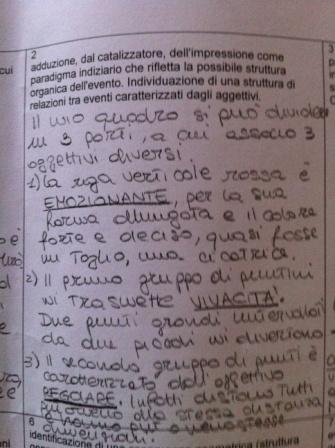 2
adduzione, dal catalizzatore, dell'impressione come
cui paradigma indiziario che rifletta la possibile struttura
organica dell'evento. Individuazione di una struttura di
relazioni tra eventi caratterizzati dagli aggettivi.
3
Il mio quadro si può dividere
in 3 parti, a cui associo 3
aggettivi diversi.
1) la riga verticale rossa è
EMOZIONANTE, per la sua
forma allungata e il colore
forte e deciso, quasi fosse
un taglio, una cicatrice.
2) Il primo gruppo di puntini
mi trasmette VIVACITÀ.
Due punti grandi intervallati
da due piccoli mi divertono
3) il secondo gruppo di punti è
caratterizzato dall'aggettivo
REGOLARE. Infatti distano tutti
della stessa distanza
e nessuno
6
dimensioni.
identificazione di una
(struttura